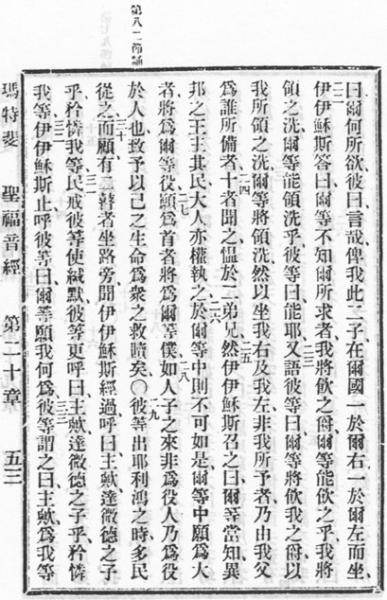 第八十二節誦
曰爾何所欲彼曰言哉俾我此二子在爾國一於爾右一於爾左而坐
二二伊伊穌斯答曰爾等不知爾所求者我將飲之爵爾等能飲之乎我將
領之洗爾等能領洗乎彼等曰能二三耶又語彼等曰爾等將飲我之爵以
我所領之洗爾等將領洗然以坐我右及我左非我所予者乃由我父
為誰所備者二四十者聞之慍於二弟兄二五然伊伊穌斯召之曰爾等當知異
邦之王主其民大人亦權執之二六於爾等中則不可如是爾等中願為大
者將為爾等役二七願為首者將為爾等僕二八如人子之來非為役人乃為役
於人也致予以己之生命為眾之救贖矣○二九彼等出耶利鴻之時多民
從之三十而願有二瞽者坐路旁聞伊伊穌斯經過呼曰主歟達微德之子
乎矜憐我等三一民戒彼等使緘默彼等更呼曰主歟達微德之子乎矜憐
我等三二伊伊穌斯止呼彼等曰爾等願我何為三三彼等謂之曰主歟為我等
瑪特斐 聖福音經 第二十章 五三